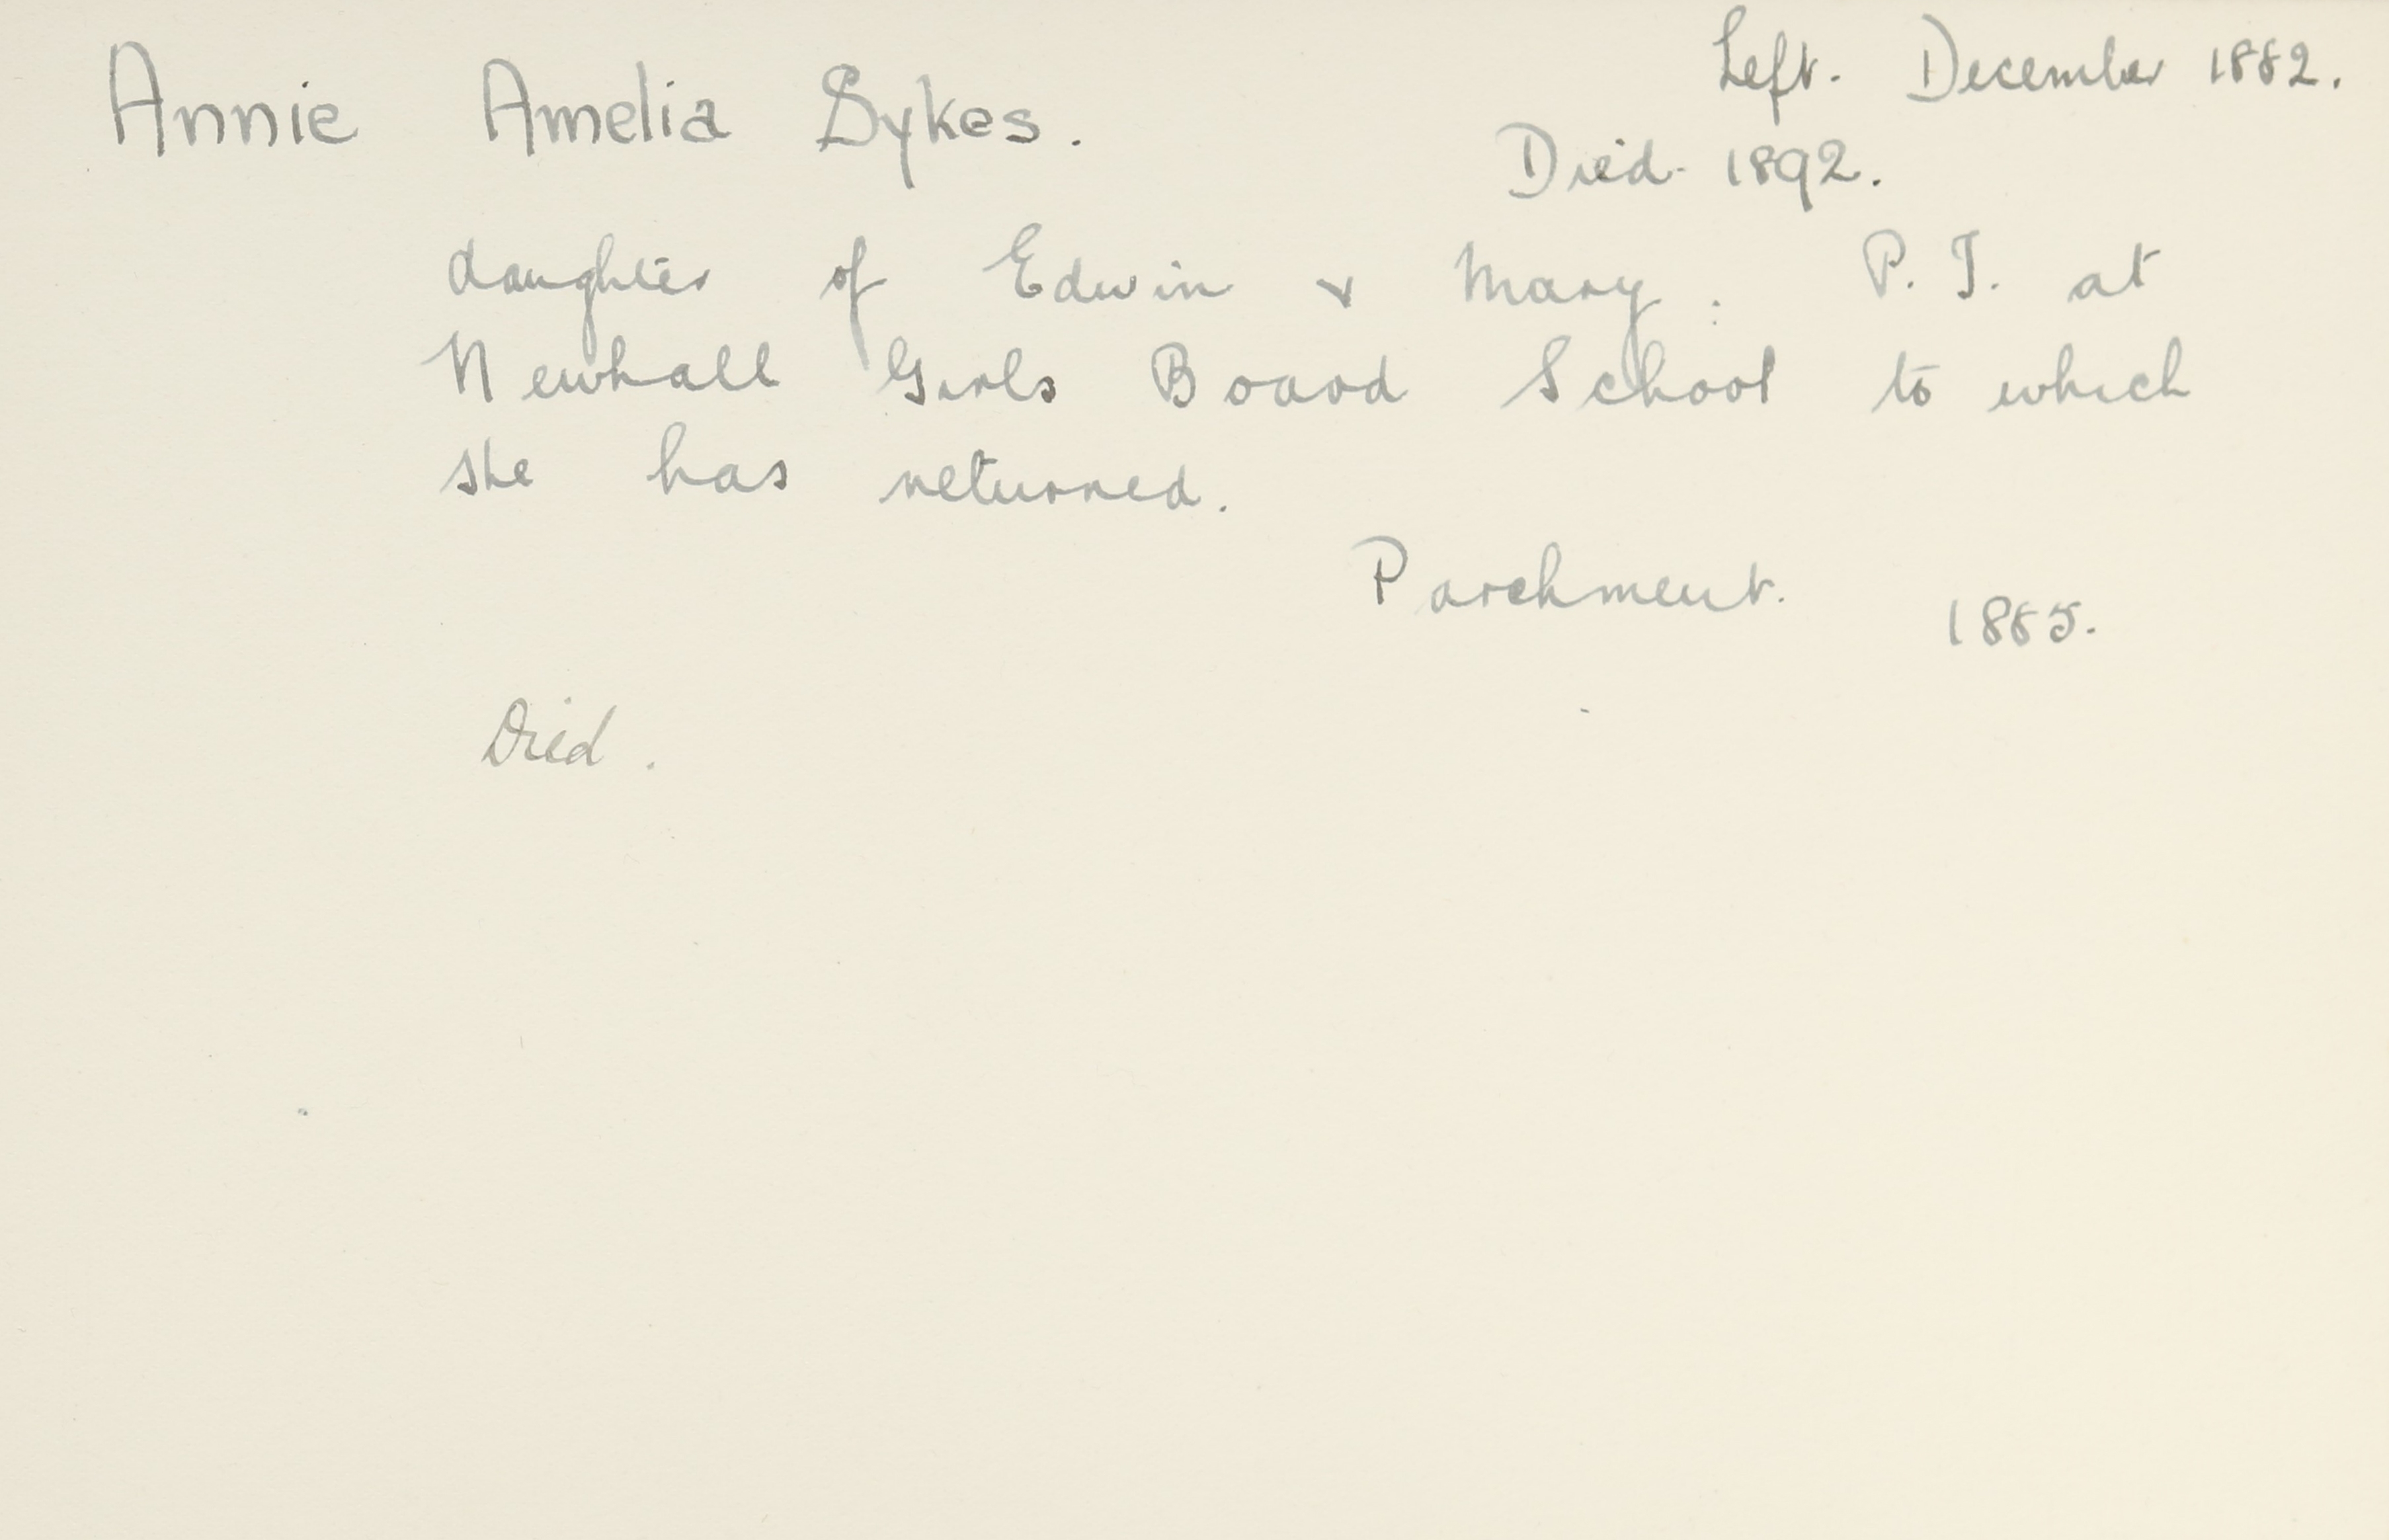 Left. December 1882.
Annie Amelia Sykes.
Died. 1892.
daughter of Edwin & Mary. P. T. at
Newhall Girls Board School to which
she has returned.
Parchment. 1885.
Died.